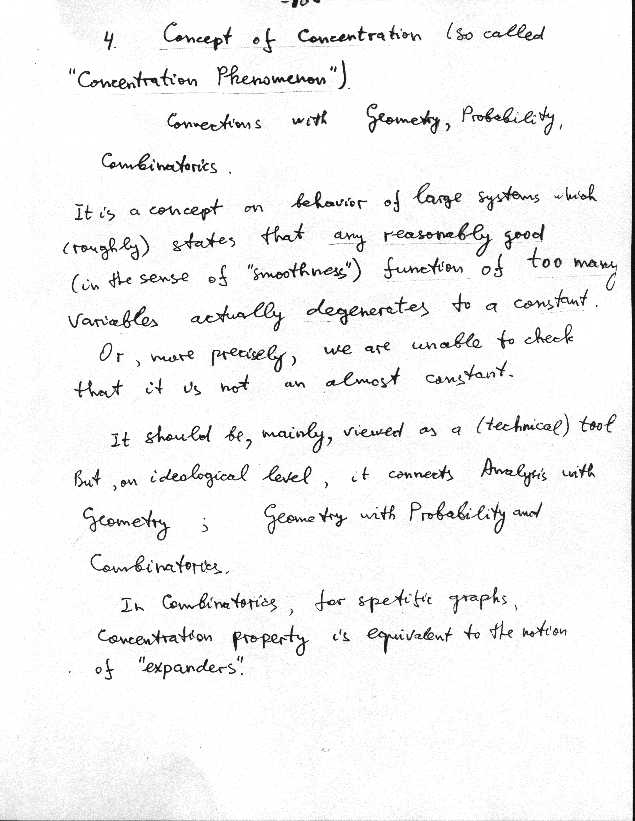 4. Concept of Concentration (so called
"Concentration Phenomenon")
Connections with Geometry, Probability,
Combinatorics.
It is a concept on behavior of large systems which
(roughly) states that any reasonably good
(in the sense of "smoothness") function of too many
variables actually degenerates to a constant.
Or, more precisely, we are unable to check
that it is not an almost constant.
It should be, mainly, viewed as a (technical) tool
But, on ideological level, it connects Analysis with
Geometry; Geometry with Probability and
Combinatorics.
In Combinatorics, for spetific graphs,
Concentration property is equivalent to the notion
of "expanders".